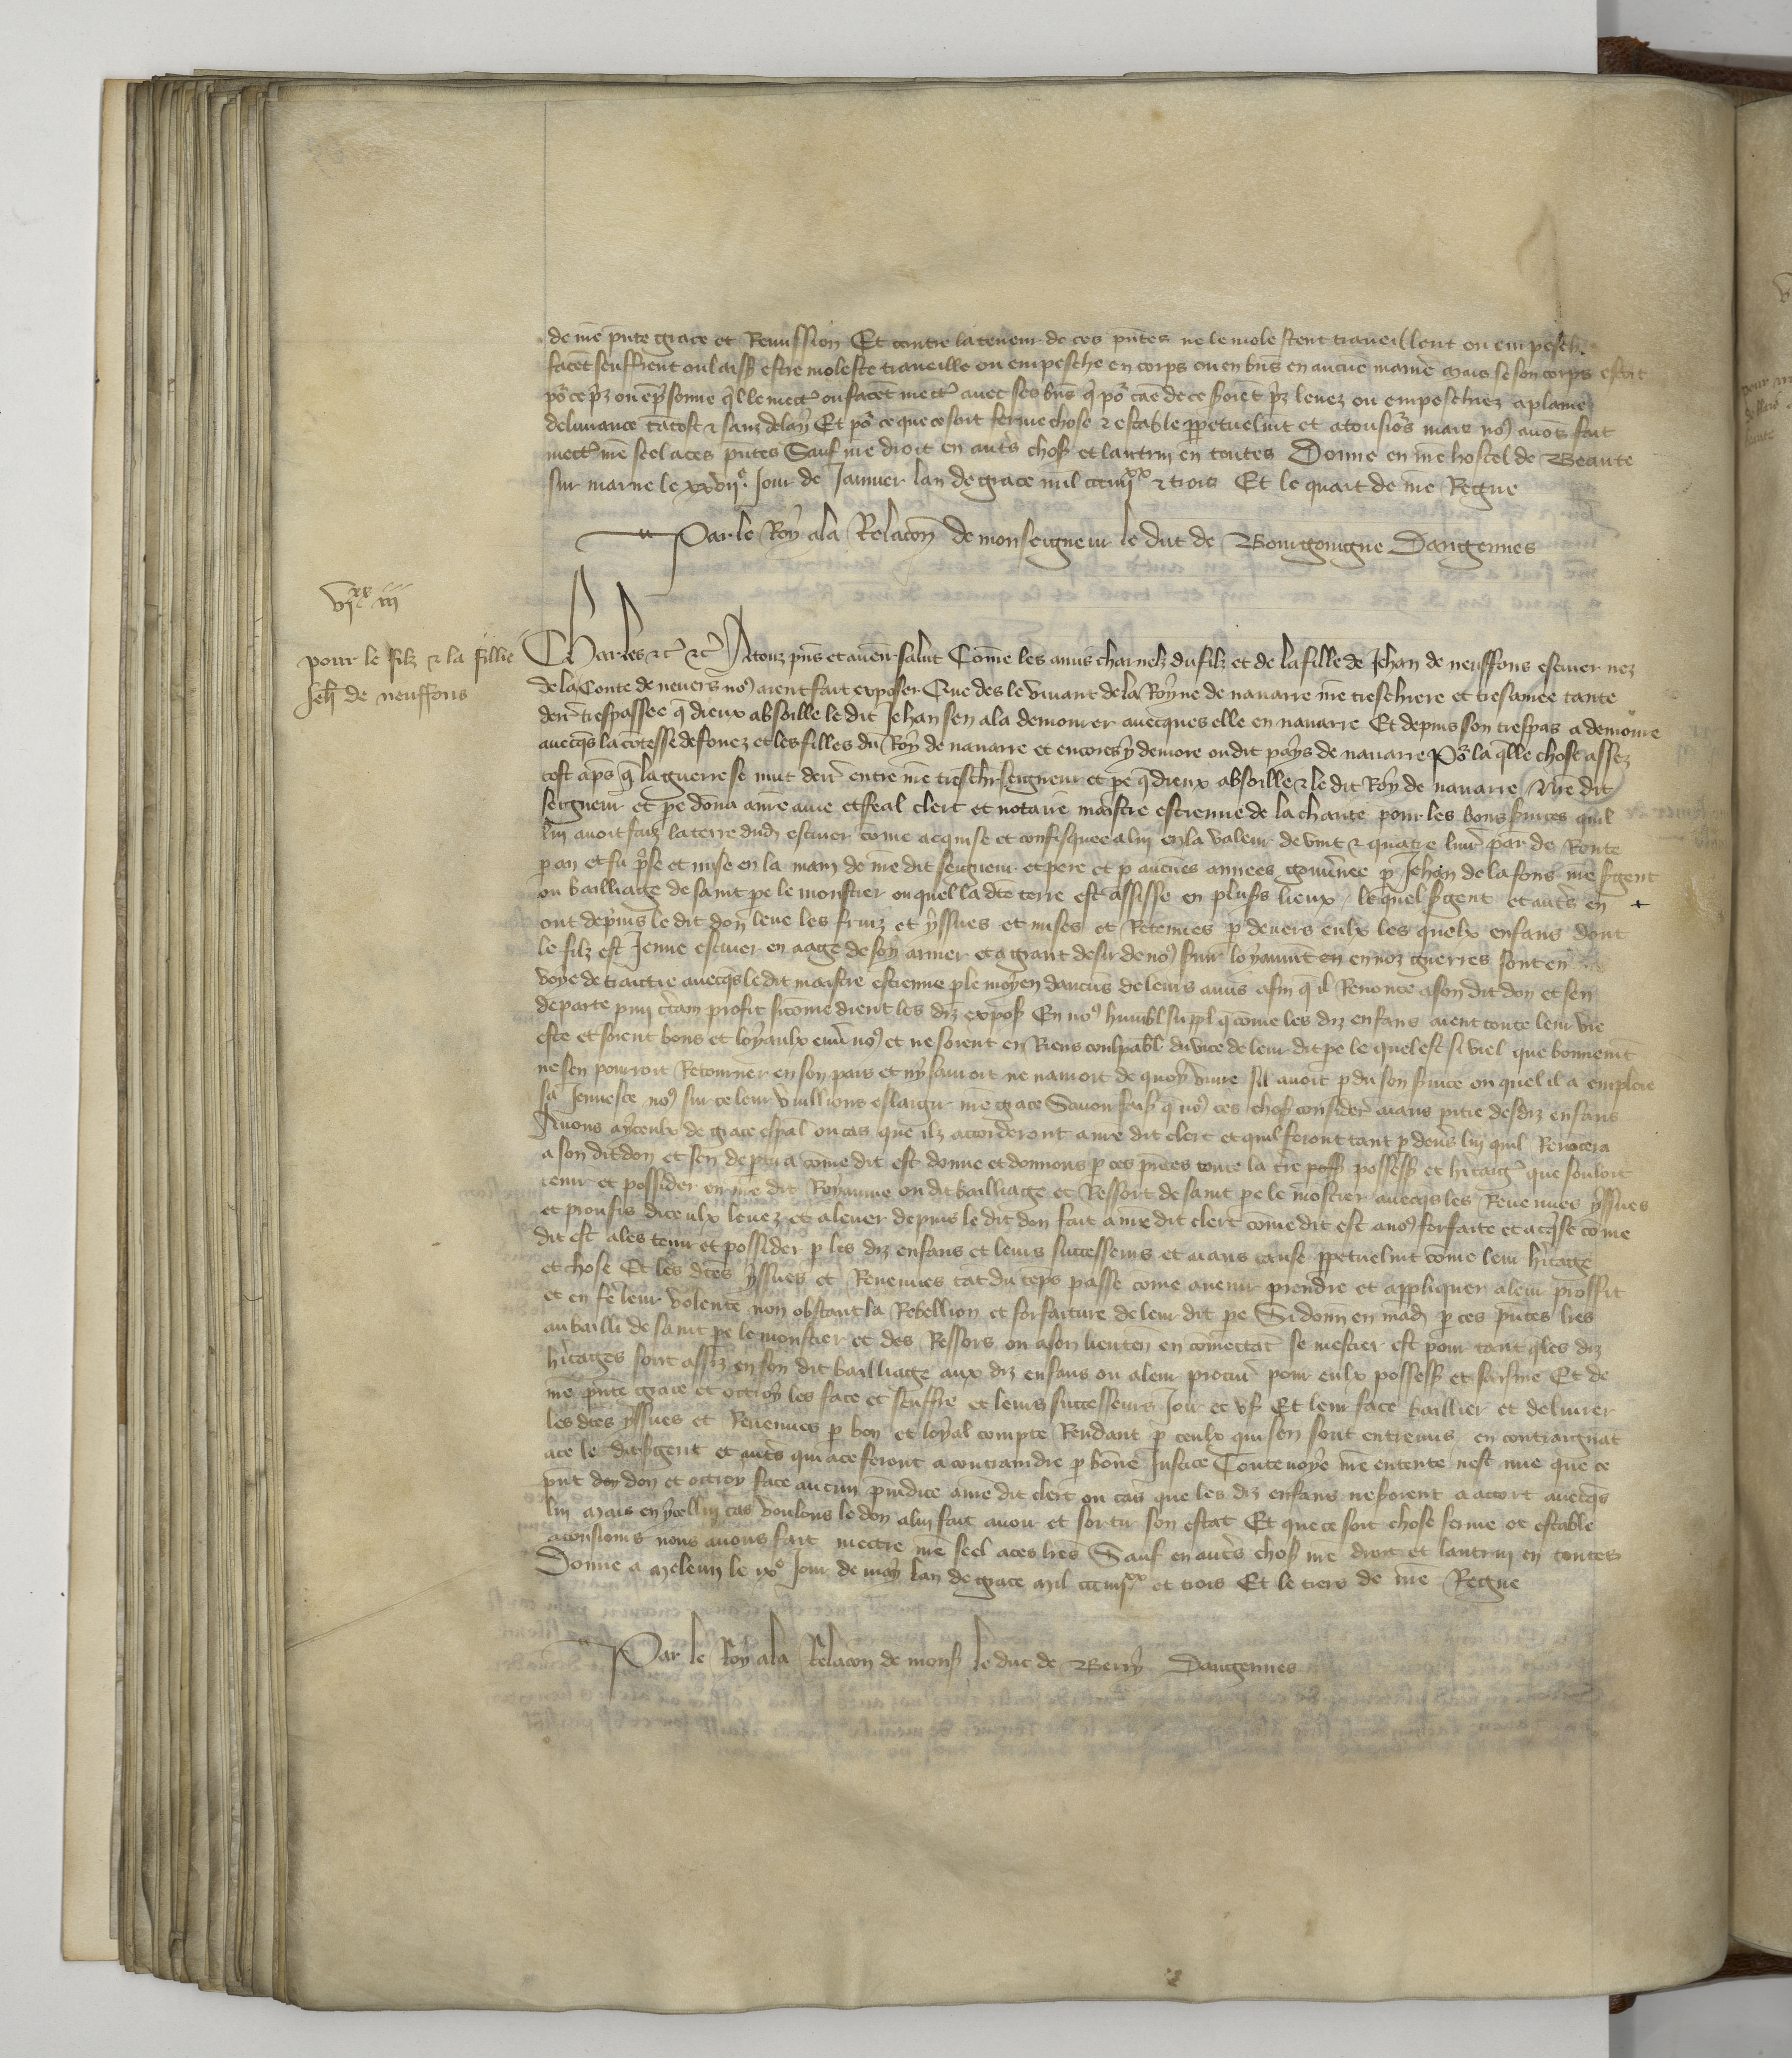 de nre pnte grace et Remission Et contre la teneur de ces pntes ne le molestent traveillent ou empeschent
facent seuffrent ou laissent estre moleste traveille ou empesche en corps ou en biens en aucune maniere mais se son corps estoit
po ce pris ou emprisonne quil le mettent ou facent mettre avec ses biens qui po cause de ce soient pris levez ou empeschiez a plaine
delivrance tantost & sanz delay Et po ce que ce soit ferme chose & estable perpetuelmt et a tousiours mais nous avons fait
mettre nre seel a ces pntes Sauf nre droit en autres choses et lautrui en toutes Donne en nre hostel de Beaute
sur marne le xxvije Jour de Janvier lan de grace mil ccciiijxx & trois Et le quart de nre Regne
Par le Roy a la Relacon de monseigneur le duc de Bourgoingne Dangennes
vixx iij
pour le filz & la fille
Jeh de neuffons
Charles &c &c A touz pns et avenir salut Comme les amis charnelz du filz et de la fille de Jehan de neuffons escuier nez
de la Conte de nevers nous aient fait exposer Que des le vivant de la Royne de navarre nre treschiere et tresamee tante
derr trespassee que dieux absoille le dit Jehan sen ala demourer avecques elle en navarre Et depuis son trespas a demoure
avecqs la contesse de fouez et les filles du Roy de navarre et encores y demore ou dit pays de navarre Po la qlle chose assez
tost apres que la guerre se mut derr entre nre treschr seigneur et pere que dieux absoille & le dit Roy de navarre Nre dit
seigneur et pere donna a nre ame et feal clerc et notaire maistre estienne de la charite pour les bons services quil
lui avoit faiz la terre dud escuier comme acquise et confisquee a lui en la valeur de vint & quatre livr par de Rente
p an et fu prise et mise en la main de nre dit seigneur et pere et p aucunes annees gouvernee p Jehan de la fons nre sergent
ou bailliage de saint pere le monstier ou quel la dte terre est assisse en pluss lieux / le quel sergent et autres en +
ont depuis le dit don leve les fruiz et yssues et mises et Retenues p devers eulx les quelx enfans dont
le filz est Jeune escuier en aage de soy armer et a grant desir de nous servir loyaument en noz guerres sont en
voye de traictie avecqs le dit maistre estienne p le moyen daucuns de leurs amis afin que il Renonce a son dit don et sen
departe pmi certain profit si comme dient les diz expos En nous humbl suppl que comme les diz enfans aient toute leur vie
este et soient bons et loyaulx envers nous et ne soient en Riens coulpabl du vice de leur dit pere le quel est si viel que bonnement
ne sen pourroit Retourner en son pais et ny sauroit ne nauroit de quoy vivre sil avoit pdu son service ou quel il a emploie
sa Jeunesce nous sur ce leur vueillions eslargir nre grace Savoir fais que nous ces choses consider aians pitie desdiz enfans
Avons a yceulx de grace espal ou cas que ilz accorderont a nre dit clerc et quil feront tant p devers lui quil Renoncera
a son dit don et sen deptira comme dit est donne et donnons p ces pntes toute la terre poss possess et heritaige que souloit
tenir et possider en nre dit Royaume ou dit bailliage et Ressort de saint pere le mostier avecqs les Revenues yssues
et proufis diceulx levez et a lever depuis le dit don fait a nre dit clerc comme dit est a nous forfaite et acqse comme
dit est a les tenir et possider p les diz enfans et leurs successeurs et aians cause perpetuelmt comme leur heritage
et chose Et les dtes yssues et Revenues tat du temps passe comme avenir prendre et appliquer a leur proffit
et en fere leur volente non obstant la Rebellion et forfaiture de leur dit pere Si donn en mad p ces pntes lres
au bailli de saint pere le monstier et des Ressors ou a son lieuten en comettat se mestier est pour tant qles diz
heritages sont assiz en son dit bailliage aux diz enfans ou a leur procur pour eulx possess et saisine Et de
nre pnte grace et octroy les face et seuffre et leurs successeurs Joir et user Et leur face baillier et delivrer
les dtes yssues et Revenues p bon et loyal compte Rendant p ceulx qui sen sont entremis en contraignat
a ce le dit sergent et autres qui a ce seront a contraindre p bonne Justice Toutevoye nre entente nest mie que ce
pnt don don et octroy face aucun preiudice a nre dit clerc ou cas que les diz enfans ne soient a acort avecqs
lui Mais en ycellui cas voulons le don a lui fait avoir et sortir son effat Et que ce soit chose ferme et estable
a tousiours nous avons fait mectre nre seel a ces lres Sauf en autres choses nre droit et lautrui en toutes
Donne a Meleun le ixe Jour de may lan de grace Mil ccciiijxx et trois Et le tiers de nre Regne
Par le Roy a la Relacon de mons le duc de Berry Dangennes